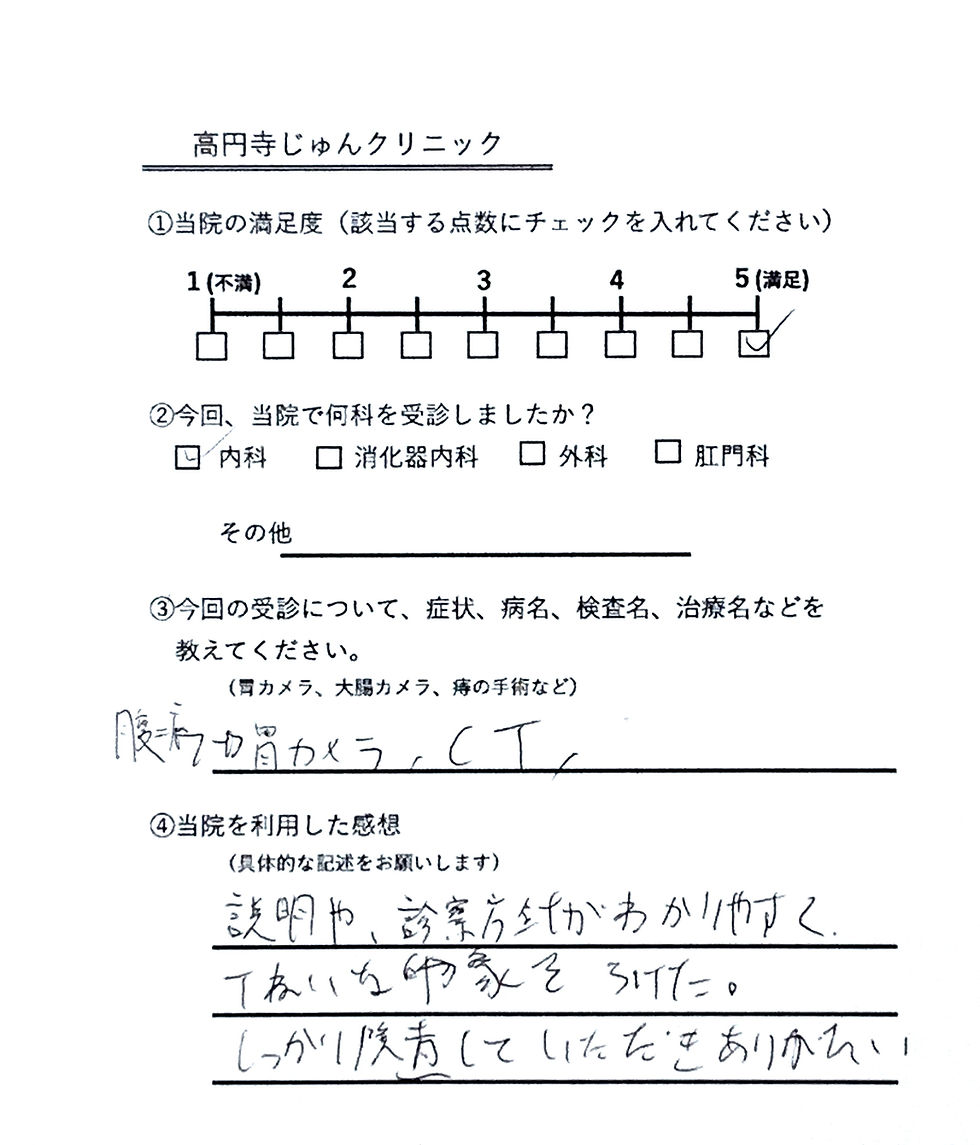 高円寺じゅんクリニック
①当院の満足度（該当する点数にチェックを入れてください）
1 (不満) 2 3 4 5 (満足)
②今回、当院で何科を受診しましたか？
内科 消化器内科 外科 肛門科
その他
③今回の受診について、症状、病名、検査名、治療名などを
教えてください。
（胃カメラ、大腸カメラ、痔の手術など）
胃カメラ，CT，
④当院を利用した感想
（具体的な記述をお願いします）
説明や、診察方針がわかりやすく、
ていねいな印象をうけた。
しっかり検査していただきありがたい